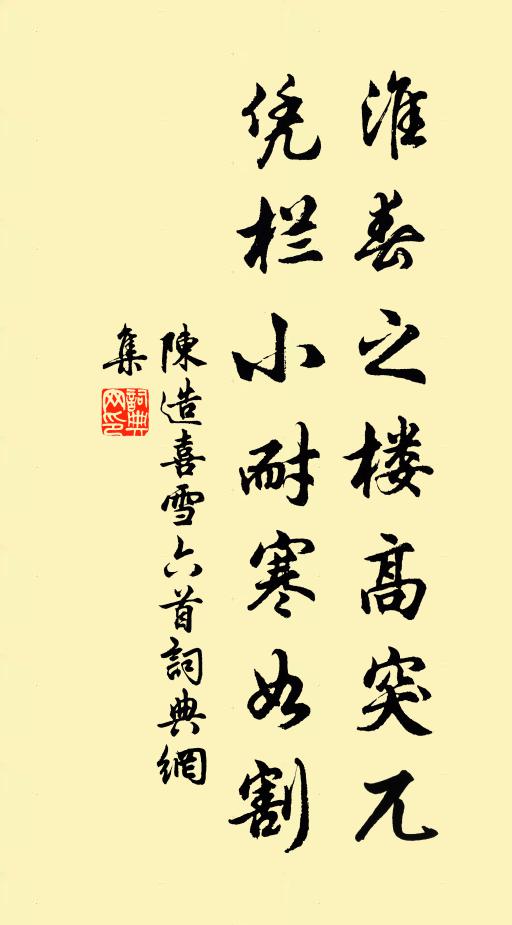 淮春之楼高突兀
凭栏小耐寒如割
陳造喜雪六首詞典網
集
詞典网印